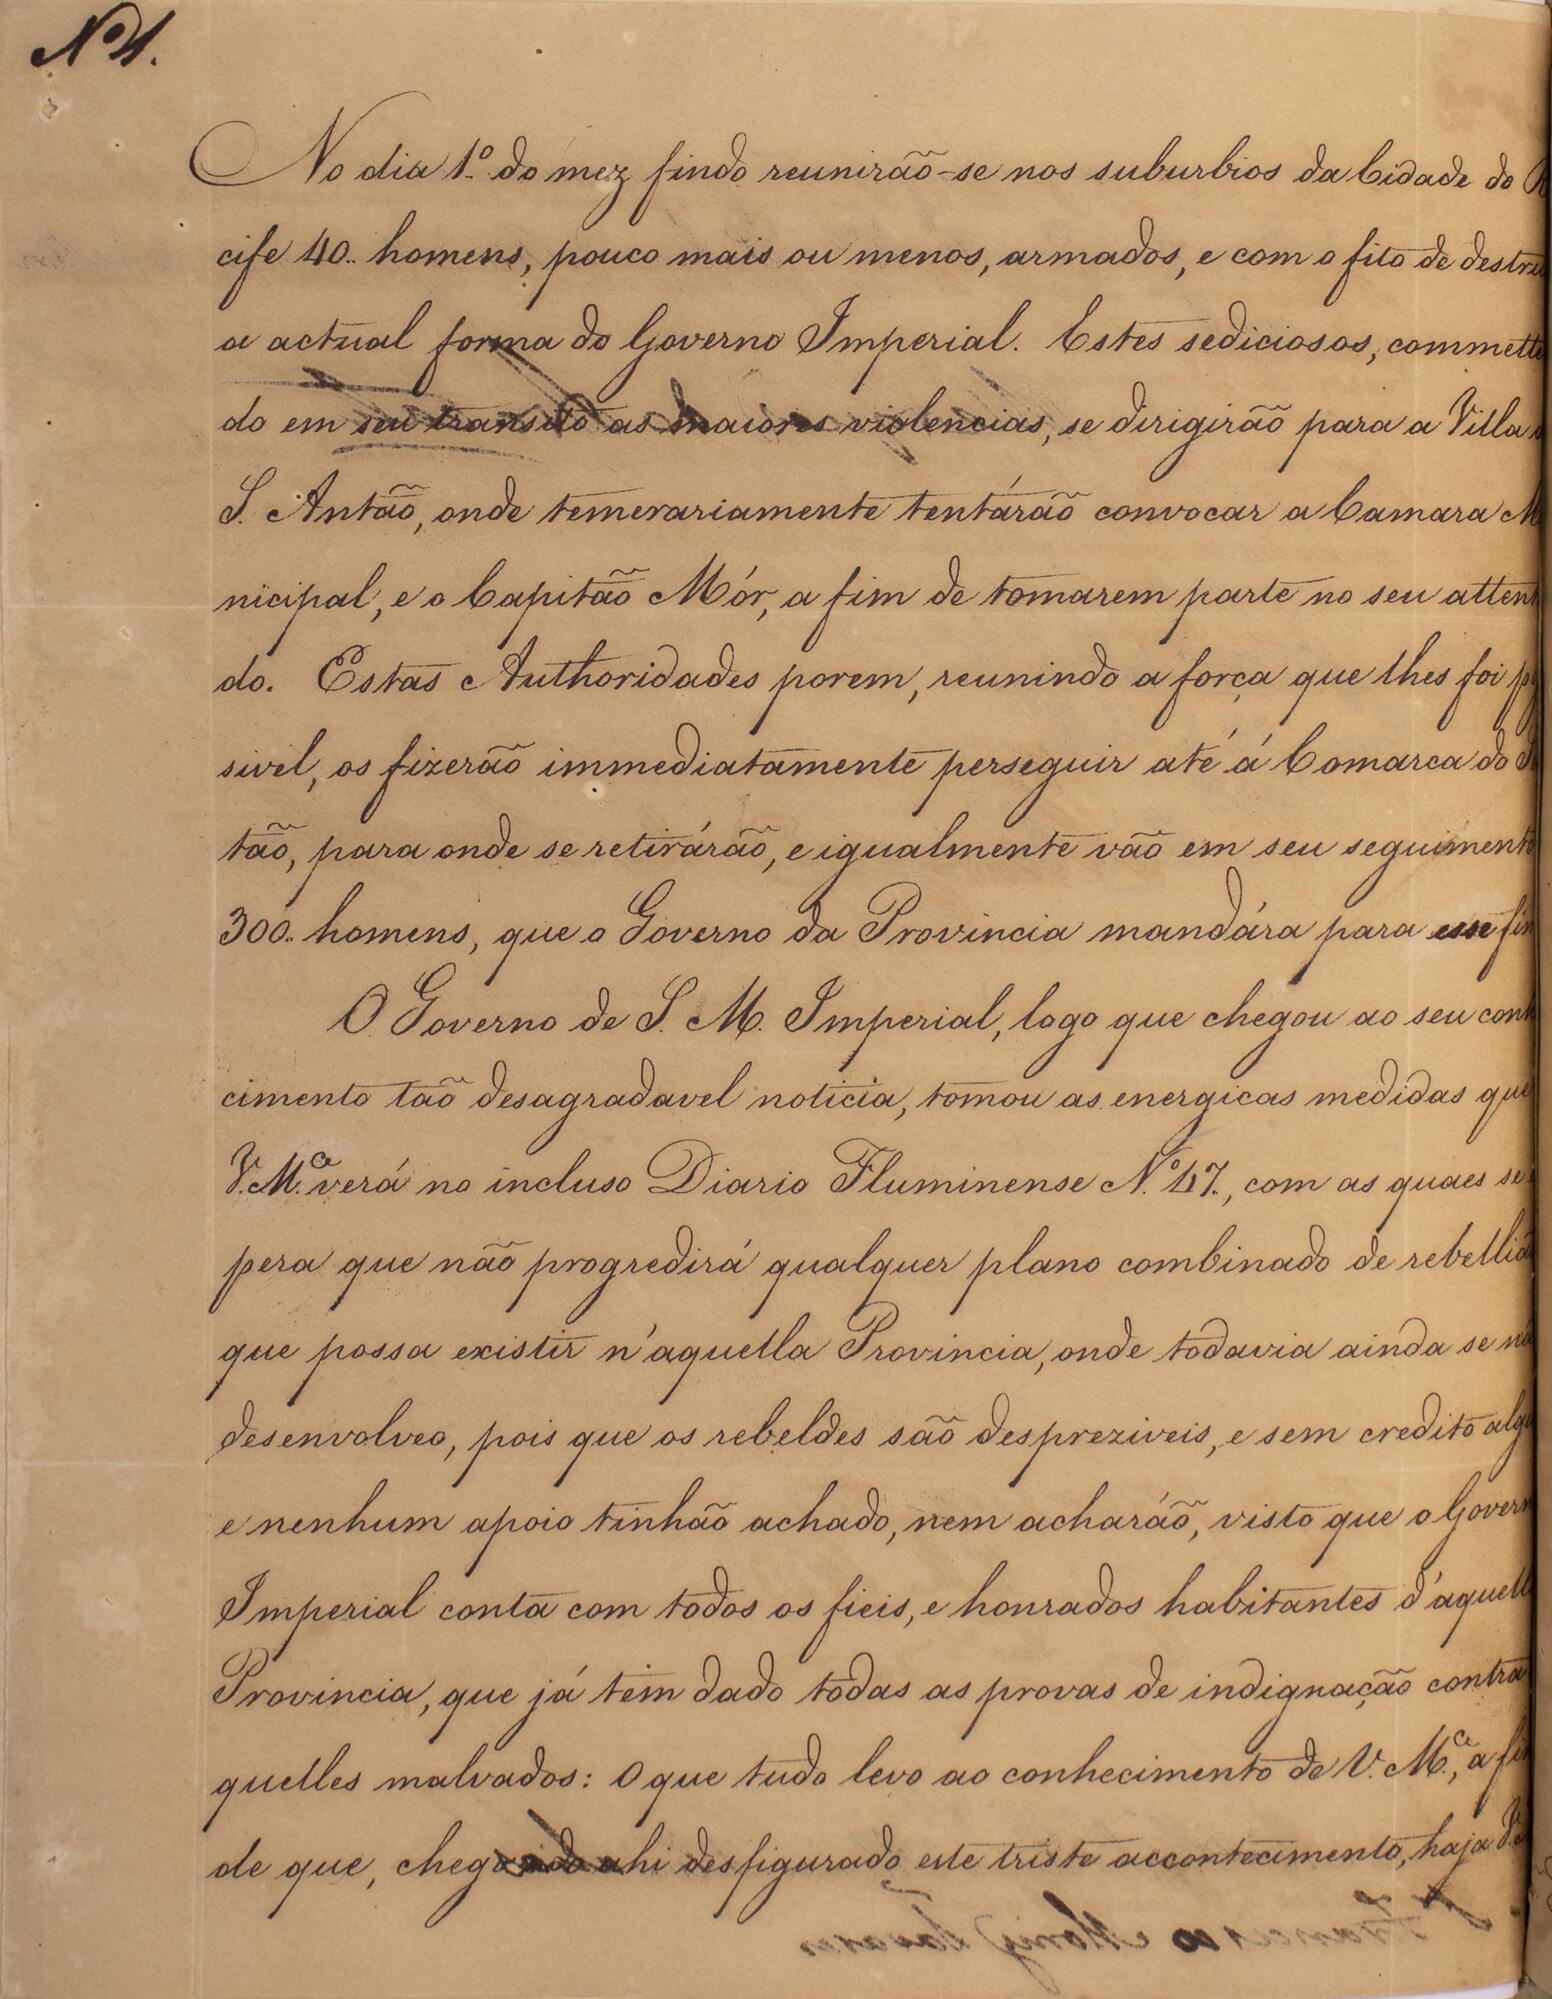 Nº 1.
No dia 1º do mez findo reunirão-se nos suburbios da Cidade do R
cife 40.. homens, pouco mais ou menos, armados, e com o fito de destru
a actual forma do Governo Imperial. Estes sediciosos, commette
do em seu transito as maiores violencias, se dirigirão para a Villa
S. Antão, onde temerariamente tentárão convocar a Camara M
nicipal, e o Capitão Mór, a fim de tomarem parte no seu attent
do. Estas Authoridades porem, reunindo a força que lhes foi po
sivel, os fizerão immediatamente perseguir até á Comarca do S
tão, para onde se retirárão, e igualmente vão em seu seguimento
300.. homens, que o Governo da Provincia mandára para esse fim
O Governo de S. M. Imperial, logo que chegou ao seu conh
cimento tão desagradavel noticia, tomou as energicas medidas que
V. M.ce verá no incluso Diario Fluminense Nº 47., com as quaes se
pera que não progredirá qualquer plano combinado de rebellião
que possa existir n'aquella Provincia, onde todavia ainda se nã
desenvolveo, pois que os rebeldes são despreziveis, e sem credito algu
e nenhum apoio tinhão achado, nem acharáõ, visto que o Govern
Imperial conta com todos os fieis, e honrados habitantes d'aquell
Provincia, que já tem dado todas as provas de indignação contra
quelles malvados: O que tudo levo ao conhecimento de V. M.ce, a fim
de que, chegando ahi desfigurado este triste accontecimento, haja V.